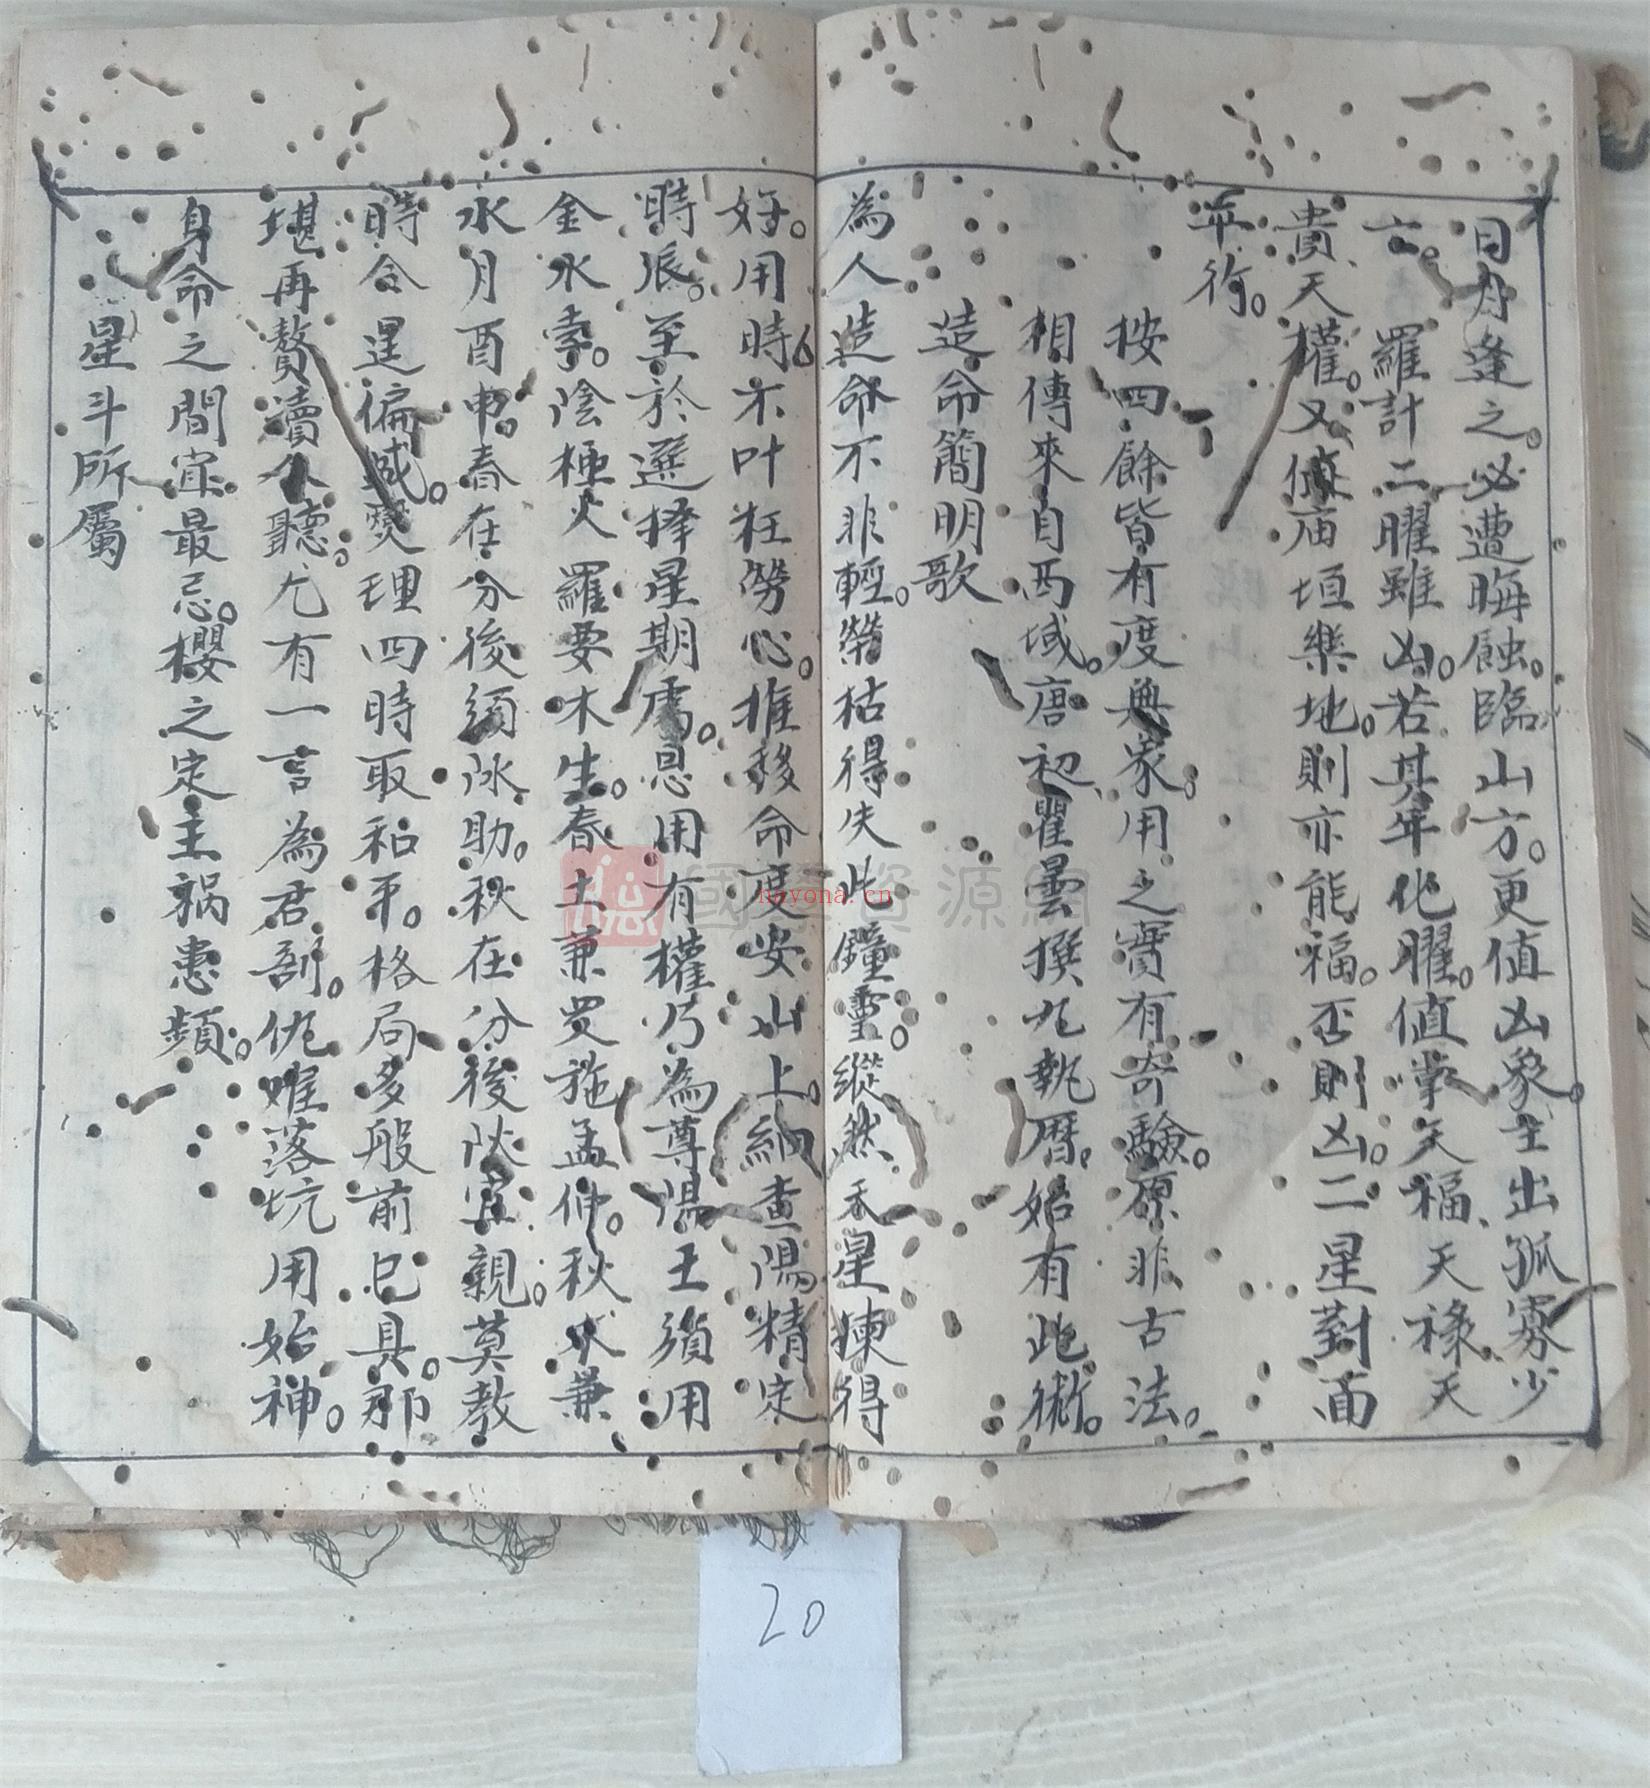 日月逢之。必遭晦蝕。臨山方。更值凶象。主出孤寡少
亡。羅計二曜雖凶。若其年化曜。值掌天福、天祿、天
貴、天權。又值庙垣樂地。則亦能福。否則凶。二星對面
平行。
按四餘皆有度與象。用之實有奇驗。原非古法。
相傳來自西域。唐初瞿曇撰九執曆。始有此術。
造命簡明歌
為人造命不非輕。榮枯得失此鐘靈。縱然禾星揀得
好。用時不叶枉勞心。推移命度安山上。細查陽精定
時辰。至於選擇星期處。恩用有權乃為尊陽王須用
金水索。陰極火羅要木生。春土兼罗施孟仲。秋水兼
水月酉申。春在分後須冰助。秋在分後炎宜親。莫教
時令逞偏減。燮理四時取和平。格局多般前已具。那
堪再贅瀆人聽。尤有一言為君剖。仇难落坑用始神。
身命之間宜最忌。櫻之定主禍患頻。
星斗所屬
國學資源網
nayona.cn
20